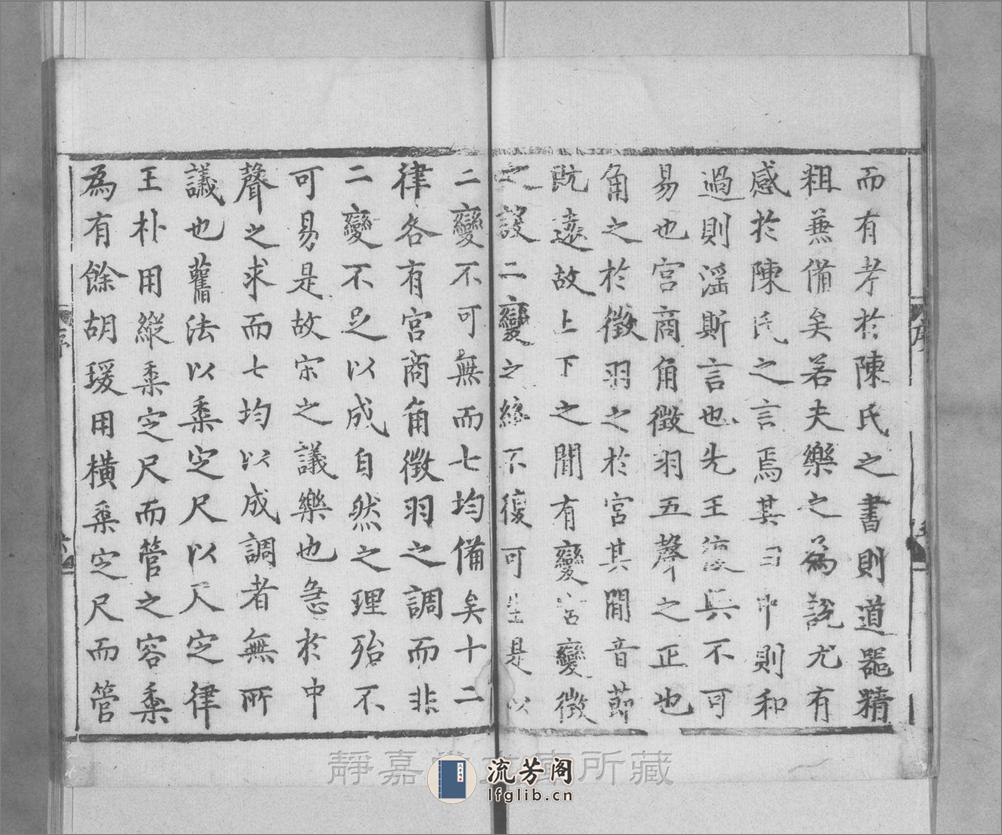 而有考於陳氏之書則道器精
粗兼備矣若夫樂之為說尤有
感於陳氏之言焉其曰中則和
過則淫斯言也先王復興不可
易也宮商角徵羽五聲之正也
角之於徵羽之於宮其間音節
既遠故上下之間有變宮變徵
之設二變之緣不復可生是以
二變不可無而七均備矣十二
律各有宮商角徵羽之調而非
二變不足以成自然之理殆不
可易是故宋之議樂也急於中
聲之求而七均以成調者無所
議也舊法以黍定尺以尺定律
王朴用縱黍定尺而管之容黍
為有餘胡瑗用橫黍定尺而管
序
序
六
靜嘉堂文庫所藏
流芳阁
lfglib.cn